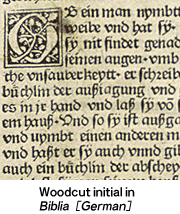 B ein man nymbtt
weibe vnd hat sy-
sy nit findet genad
seinen augen·vmb
the vnsauberkeytt· er schreib
büchlin der außziehung·vnd
es in jr hand vnd laß sy vō s
em hauß·Vnd so sy ist außga
vnd nymbt einen anderen m
vnd haßt er sy auch vnnd gib
auch ein büchlin der abschey
Woodcut initial in
Biblia [German]